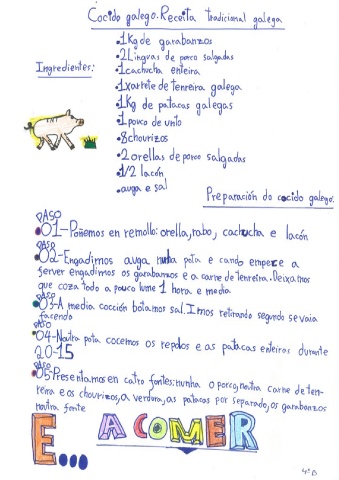 Cocido galego. Receita tradicional galega
Ingredientes:
•1Kg de garabanzos
•2Linguas de porco salgadas
•1cachucha enteira
•1xarrete de tenreira galega
•1Kg de patacas galegas
•1porco de unto
•8chourizos
•2orellas de porco salgadas
•1/2 lacón
•auga e sal
Preparación do cocido galego:
PASO
•01-Poñemos en remollo: orella, rabo, cachucha e lacón
PASO
•02-Engadimos auga nunha pota e cando empece a
ferver engadimos os garabanzos e a carne de tenreira. Deixamos
que coza todo a pouco lume 1 hora e media
PASO
•03-A media cocción botamos sal. Imos retirando segundo se vaia
facendo
PASO
•04-Noutra pota cocemos os repolos e as patacas enteiras durante
20-15
PASO
•05-Presentamos en catro fontes: nunha o porco, noutra carne de ten-
reira e os chourizos, a verdura, as patacas por separado, os garabanzos
noutra fonte
E... A COMER
4ºB